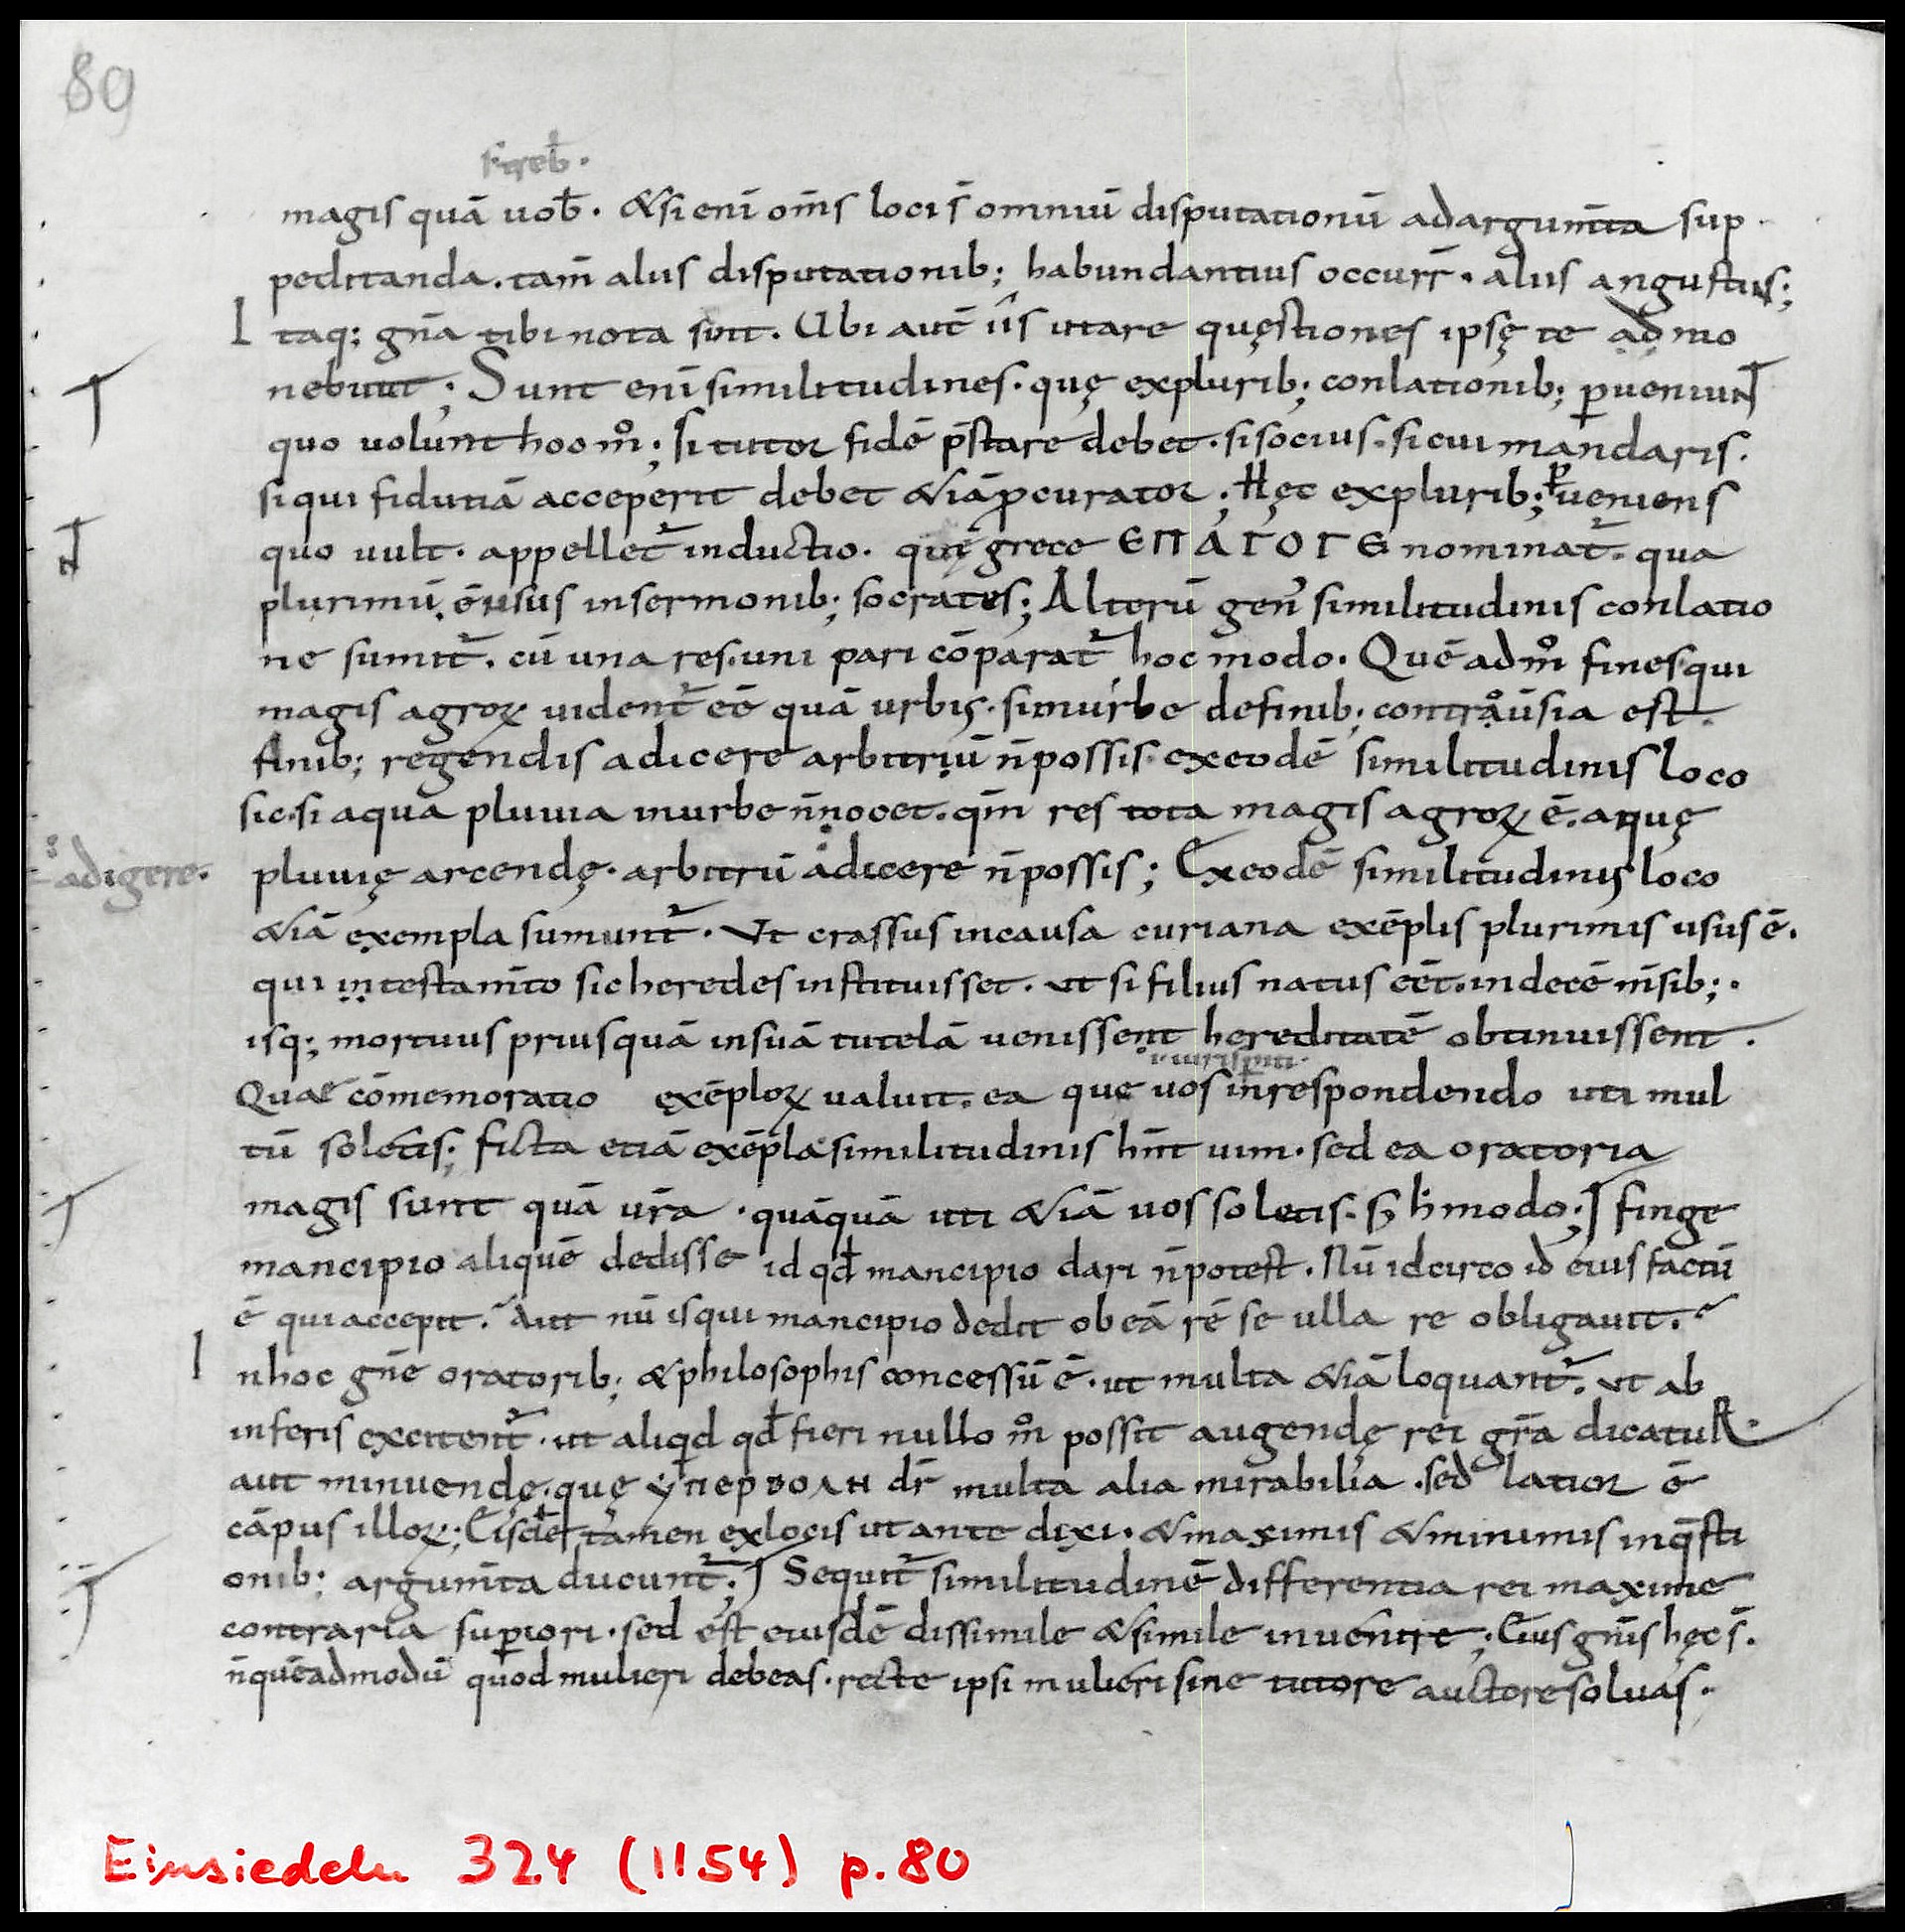 80
s· treb̄·
magis quā uob̄· &si enī om̄s loci s̄ omniū disputationū ad argum̄ta sup
peditanda· tam̄ aliis disputationib; habundantius occurr̄· aliis angustius;
I taq; gn̄a tibi nota sint. Ubi aut̄ iis utare quęstiones ipsę te admo
nebunt; Sunt enī similitudines· quę ex plurib; conlationib; ꝑueniunt
quo uolunt hoc mͦ; si tutor fidē p̄stare debet· si socius· si cui mandaris·
si qui fidutiā acceperit debet &iā ꝓcurator; Hęc ex plurib; ꝑueniens
quo uult· appelletᷣ inductio· quę grece ЄΠΑΓΟΓЄ nominatᷣ· qua
plurimū ē usus in sermonib; socrates; Alterū genꝰ similitudinis conlatio
ne sumitᷣ· cū una res· uni pari cōparatᷣ hoc modo· Quēadmͦ fines qui
magis agroꝝ uidentᷣ eē quā urbis· si in urbe de finib; contrauersia est·
finib; regendis adicere arbitriū n̄ possis· ex eodē similitudinis loco
sic· si aqua pluuia in urbe n̄ nocet· qm̄ res tota magis agroꝝ ē· aquę
adigere·
pluuię arcendę· arbitrū adicere n̄ possis; Ex eodē similitudinis loco
&iā exempla sumuntᷣ· Ut crassus in causa curiana exēplis plurimis usus ē·
qui in testam̄to sic heredes instituisset· ut si filius natus eēt· in decē m̄sib;·
isq; mortuus priusquā in suā tutelā uenissent hereditatē obtinuissent·
Quae cōmemoratio exēploꝝ ualuit· ea que uos in respondendo uti mul
tū soletis; ficta etiā exēpla similitudinis hn̄t uim· sed ea oratoria
magis sunt quā ur̄a · quāquā uti &iā uos soletis· sꝫ h̄ modo; finge
mancipio aliquē dedisse id qd̄ mancipio dari n̄ potest· Nū idcirco id eius factū
ē qui accepit· Aut nū is qui mancipio dedit ob eā rē se ulla re obligauit·
I nhoc gn̄e oratorib; & philosophis concessū ē· ut multa &iā loquantᷣ· ut ab
inferis excitentᷣ· ut aliqd qd̄ fieri nullo mͦ possit augendę rei gr̄a dicatur·
aut minuendę· quę ΥΠΕΡΒΟΛΗ dr̄ multa alia mirabilia · sed latior ē
cāpus illoꝝ; Eisdē tamen ex locis ut ante dixi· & maximis & minimis in q̄sti
onib; argum̄ta ducuntᷣ; Sequitᷣ similitudinē differentia rei maxime
contraria suꝑiori· sed est eiusdē dissimile & simile inuenire; Eius gn̄is hęc s̄·
n̄ quēadmodū quod mulieri debeas· recte ipsi mulieri sine tutore auctore soluas·
Einsiedeln 324 (1154) p. 80